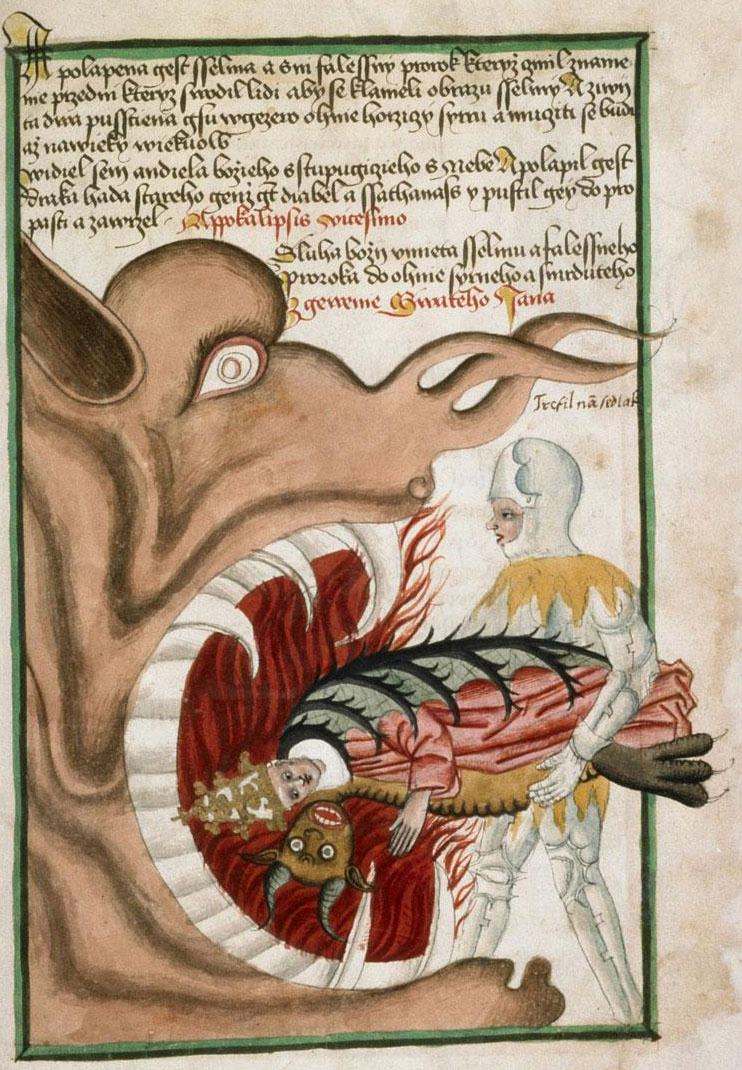 A polapena gest sselma a s ni falessny prorok kteryz czinil zname
nie przedni kterymz swodil lidi aby se klaneli obrazu sselmy A ziwy
ta dwa pusstiena gsu wgezero ohnie horzigy syru a mucziti se budu
az nawieky wiekuow
widiel sem andiela bozieho sstupugiczieho s Nebe A polapil gest
draka hada stareho genz gt diabel a ssathanass y pustil gey do pro
pasti a zawrzel Appokalipsis vicesimo
Sluha bozy vmeta sselmu a falessneho
proroka do ohnie syrneho a smrduteho
Z gewenie Swateho Jana
Trefil na sedlak